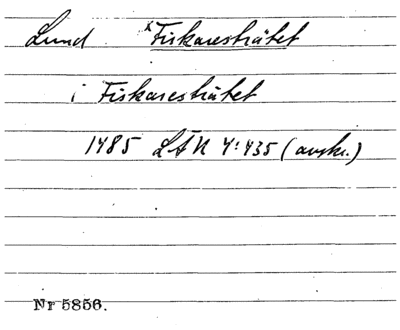 Lund xFiskaresträtet
i Fiskaresträtet
1485 LÄU 4:435 (avskr.)
Nr 5856.